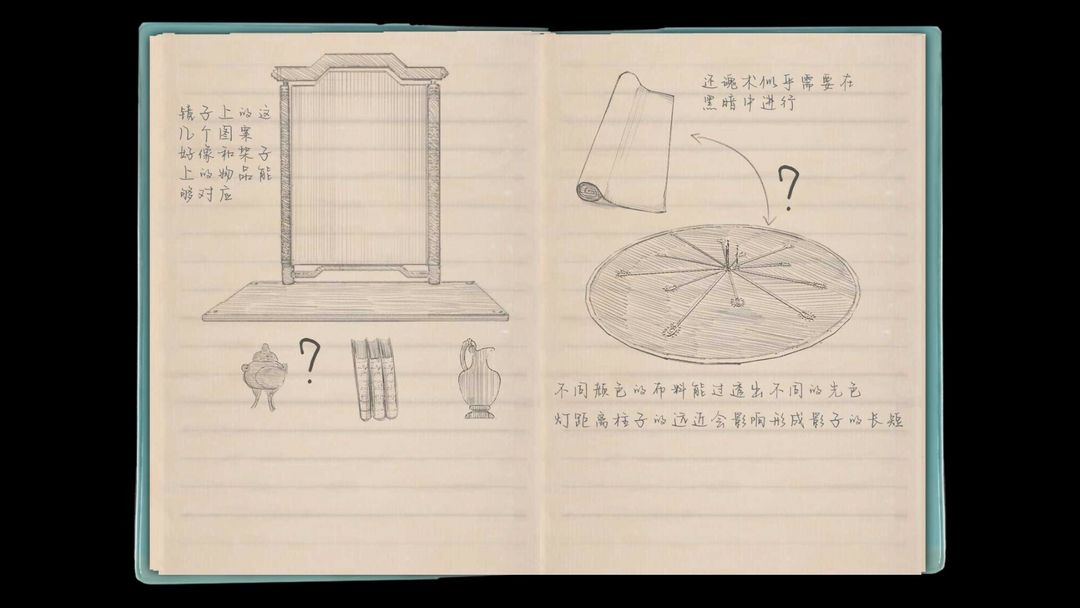 镜子上的这
几个图案
好像和架子
上的物品能
够对应
?
还魂术似乎需要在
黑暗中进行
?
不同颜色的布料能过透出不同的光色
灯距离柱子的远近会影响形成影子的长短